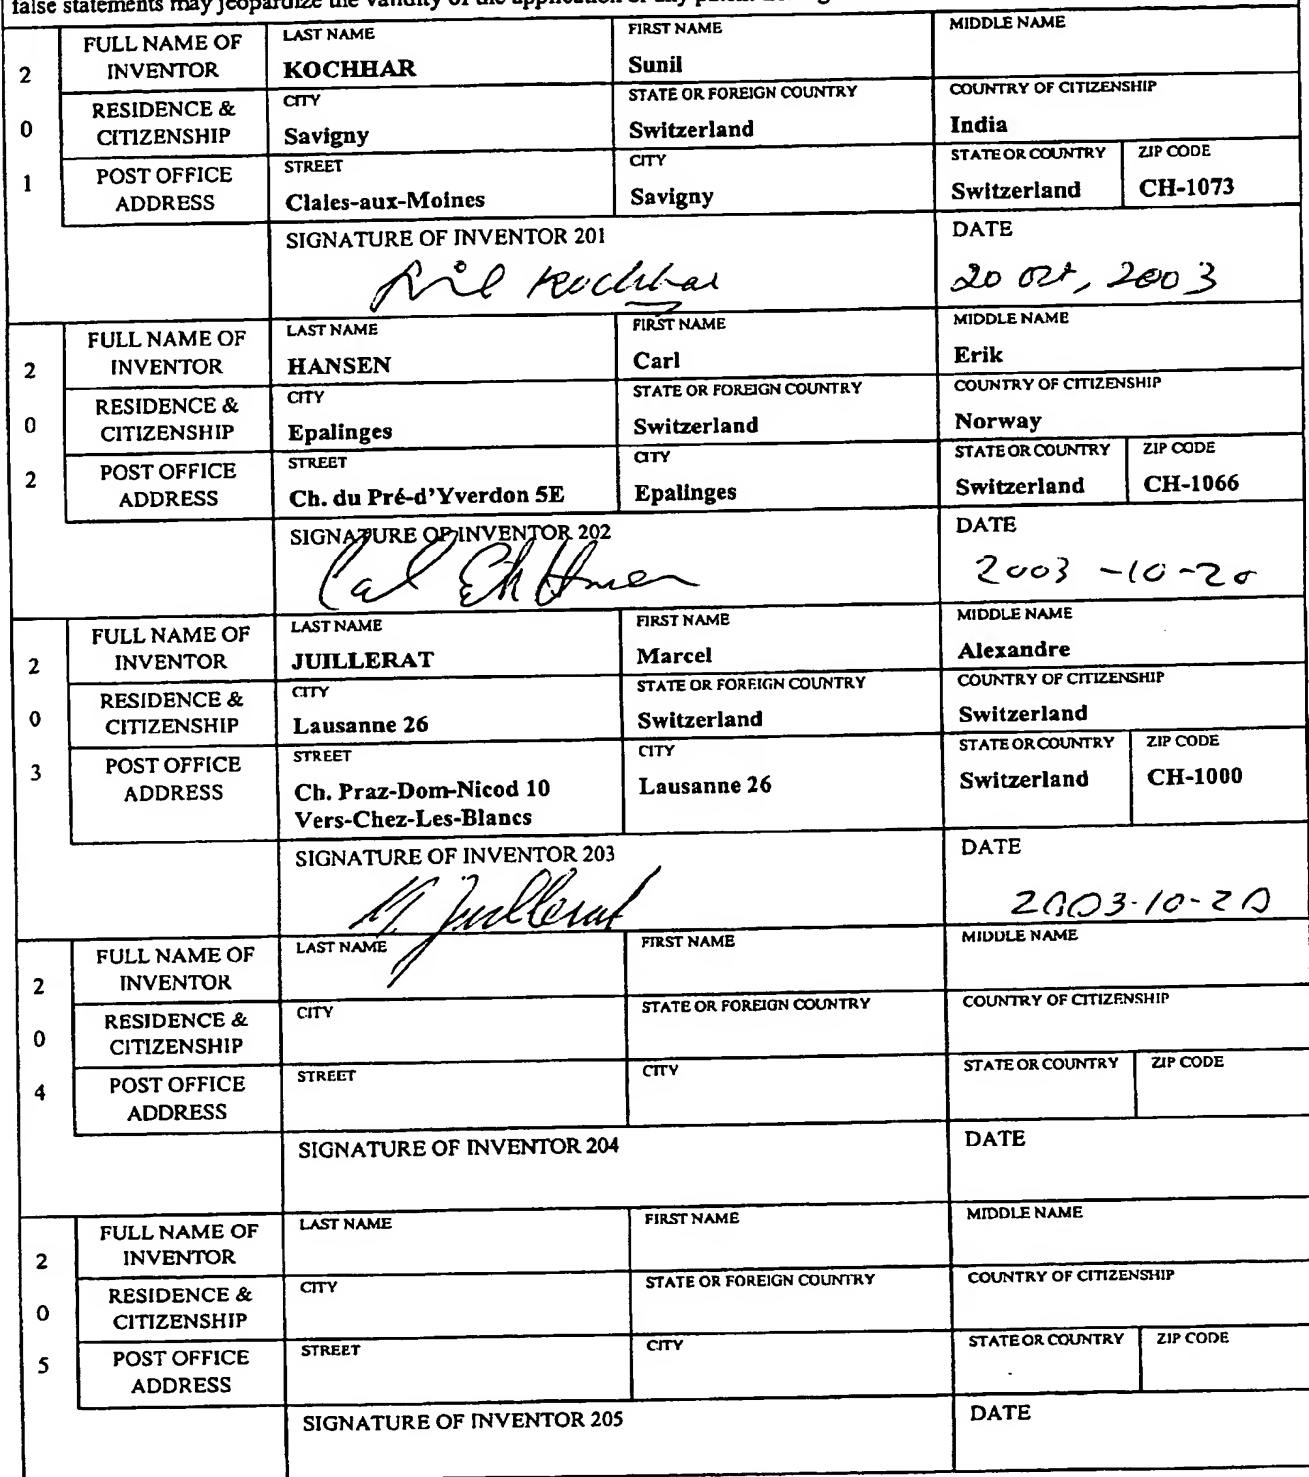 false statements may jeopardize the validity of the application or any patent
2 0 1
FULL NAME OF INVENTOR
LAST NAME
KOCHHAR
FIRST NAME
Sunil
MIDDLE NAME
RESIDENCE & CITIZENSHIP
CITY
Savigny
STATE OR FOREIGN COUNTRY
Switzerland
COUNTRY OF CITIZENSHIP
India
POST OFFICE ADDRESS
STREET
Claies-aux-Moines
CITY
Savigny
STATE OR COUNTRY
Switzerland
ZIP CODE
CH-1073
SIGNATURE OF INVENTOR 201
Kochhar
DATE
20 Oct, 2003
2 0 2
FULL NAME OF INVENTOR
LAST NAME
HANSEN
FIRST NAME
Carl
MIDDLE NAME
Erik
RESIDENCE & CITIZENSHIP
CITY
Epalinges
STATE OR FOREIGN COUNTRY
Switzerland
COUNTRY OF CITIZENSHIP
Norway
POST OFFICE ADDRESS
STREET
Ch. du Pré-d'Yverdon 5E
CITY
Epalinges
STATE OR COUNTRY
Switzerland
ZIP CODE
CH-1066
SIGNATURE OF INVENTOR 202
Carl Erik Hansen
DATE
2003-10-20
2 0 3
FULL NAME OF INVENTOR
LAST NAME
JUILLERAT
FIRST NAME
Marcel
MIDDLE NAME
Alexandre
RESIDENCE & CITIZENSHIP
CITY
Lausanne 26
STATE OR FOREIGN COUNTRY
Switzerland
COUNTRY OF CITIZENSHIP
Switzerland
POST OFFICE ADDRESS
STREET
Ch. Praz-Dom-Nicod 10
Vers-Chez-Les-Blancs
CITY
Lausanne 26
STATE OR COUNTRY
Switzerland
ZIP CODE
CH-1000
SIGNATURE OF INVENTOR 203
M. Juillerat
DATE
2003-10-20
2 0 4
FULL NAME OF INVENTOR
LAST NAME
FIRST NAME
MIDDLE NAME
RESIDENCE & CITIZENSHIP
CITY
STATE OR FOREIGN COUNTRY
COUNTRY OF CITIZENSHIP
POST OFFICE ADDRESS
STREET
CITY
STATE OR COUNTRY
ZIP CODE
SIGNATURE OF INVENTOR 204
DATE
2 0 5
FULL NAME OF INVENTOR
LAST NAME
FIRST NAME
MIDDLE NAME
RESIDENCE & CITIZENSHIP
CITY
STATE OR FOREIGN COUNTRY
COUNTRY OF CITIZENSHIP
POST OFFICE ADDRESS
STREET
CITY
STATE OR COUNTRY
ZIP CODE
SIGNATURE OF INVENTOR 205
DATE